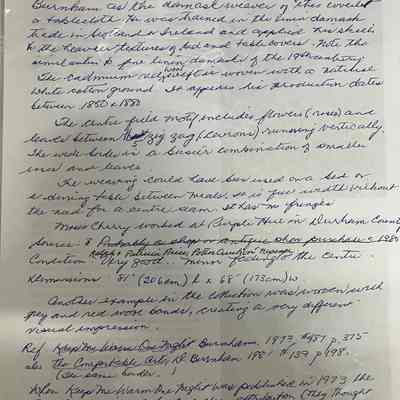 Burnham as the damask weaver of this coverlet
a tablecloth. He was trained in the linen damask
trade in Scotland or Ireland and applied his skills
to the heavier textures of bed and table covers. Note the
similarities to fine linen damasks of the 19th century
The cadmium red wool weft is woven with a natural
white cotton ground. It appears his production dates
between 1850 & 1880
The centre field motif includes flowers (roses) and
leaves between 5 zig zag (chevrons) running vertically.
The wide border is a busier combination of smaller
roses and leaves
The weaving could have been used on a bed or
a dining table between meals, as is full width without
the need for a centre seam. It has no fringes
Moses Cherry worked at Purple Hill in Durham County
Source: Probably a shop or antique show purchase c 1980
Ralph & Patricia Price, Port
Condition: Very good. minor fading to the centre.
Dimensions 81" (206cm) l x 68" (173cm) w
Another example in the collection was woven with
grey and red wool bands, creating a very different
visual impression.
Ref. Keep Me Warm One Night Burnhams, 1973, #487 p. 375
also the Comfortable Arts, D. Burnham 1981 #137 p 98.
(the same border!)
Keep Me Warm One Night was published in 1973 the
(they thought